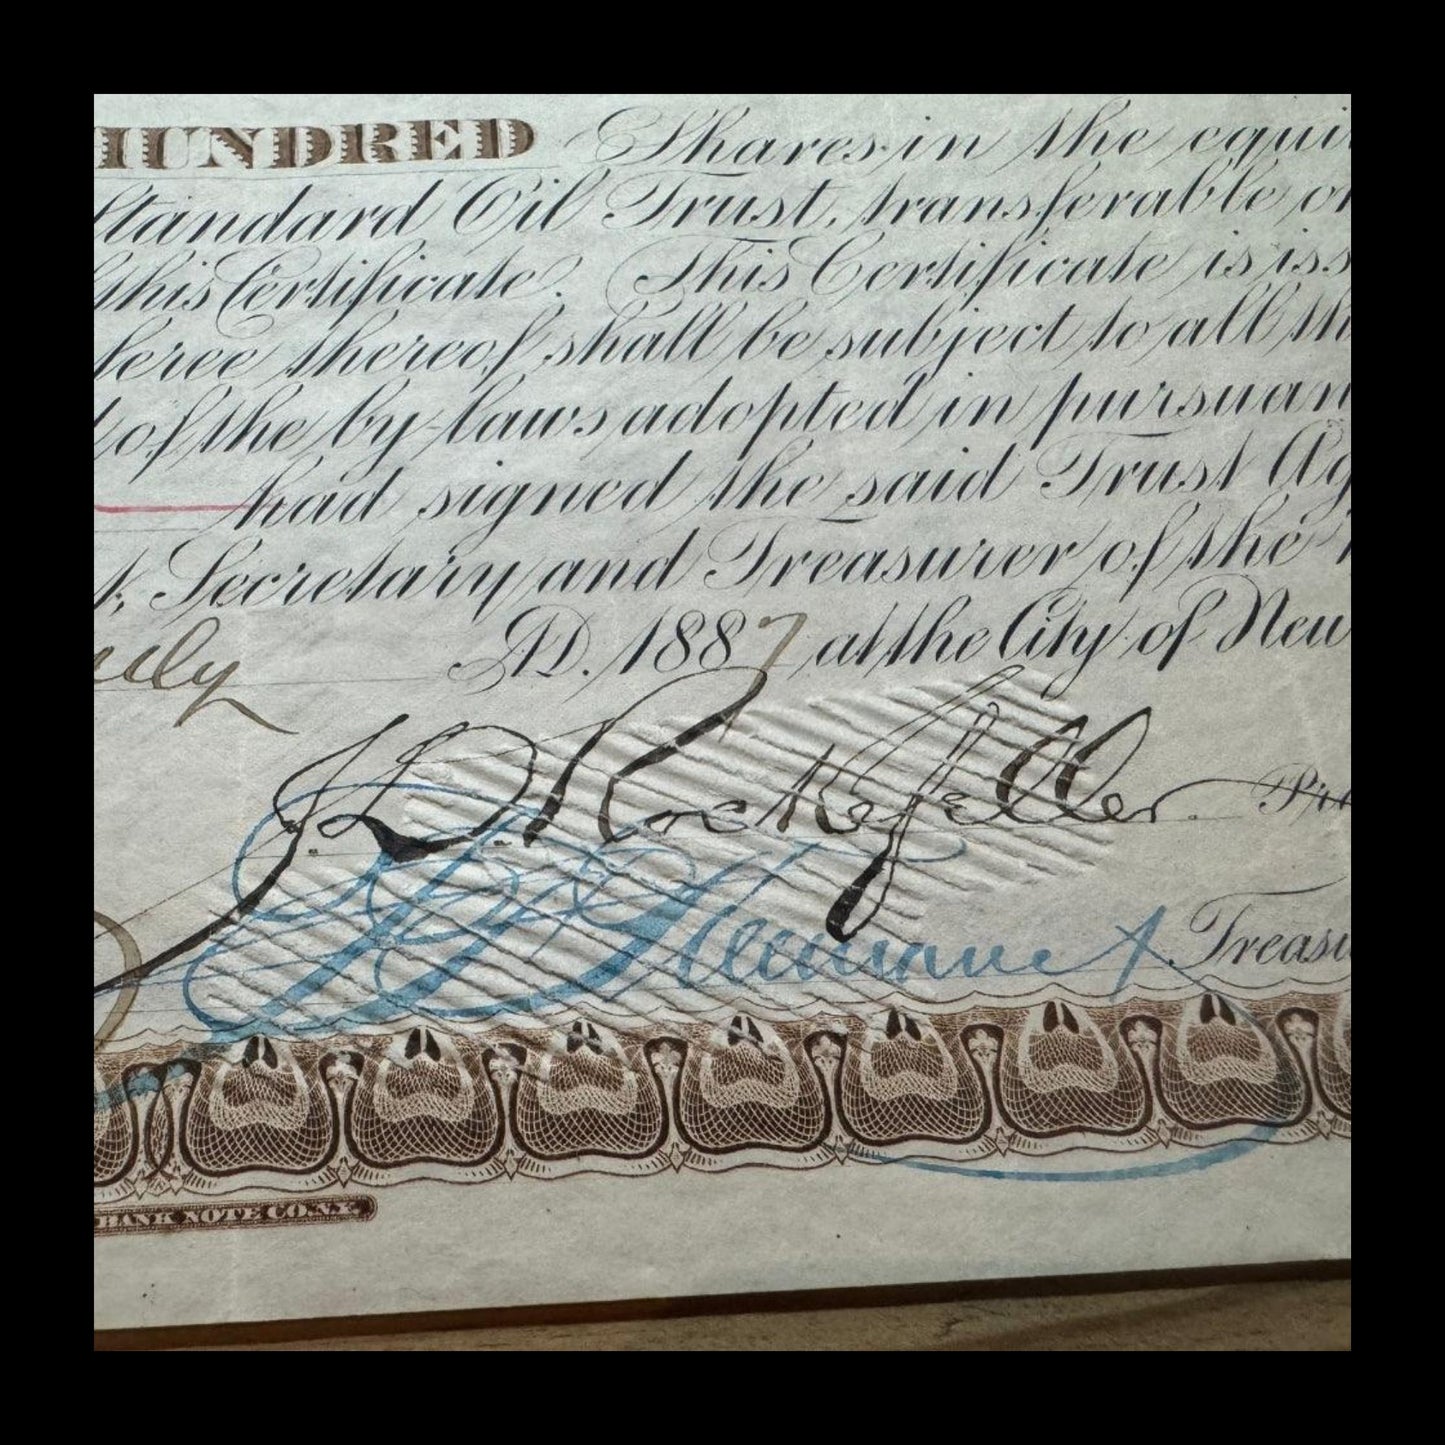 HUNDRED Shares in the equi
Standard Oil Trust, transferable on
this Certificate. This Certificate is iss
feree thereof shall be subject to all th
of the by-laws adopted in pursuan
had signed the said Trust Ag
Secretary and Treasurer of the
uly A.D. 1887 at the City of New
J. D. Rockefeller. Pre
Treasu
BANK NOTE CO. N.Y.